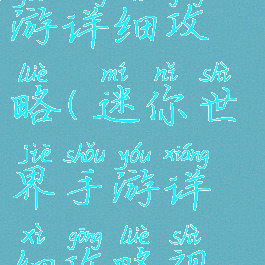 游详细攻
lüè mí nǐ shì
略(迷你世
jiè shǒu yóu xiáng
界手游详
xì gōng lüè shì
细攻略视